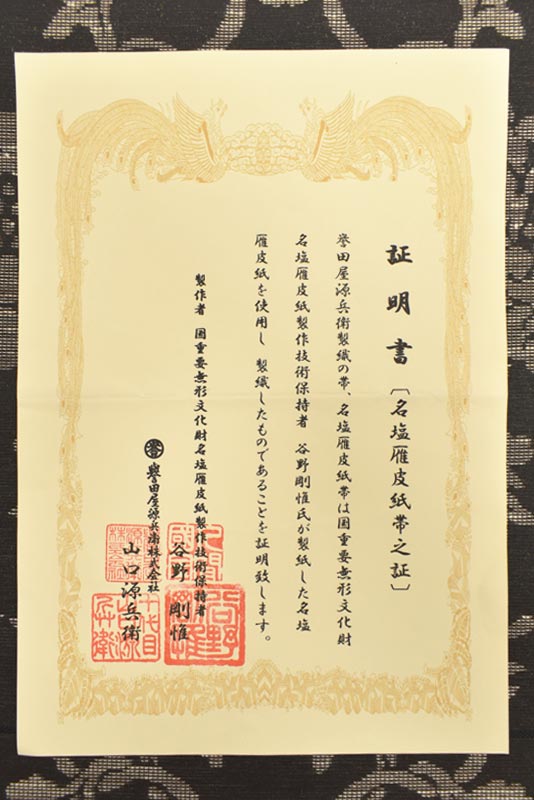 証明書〔名塩雁皮紙帯之証〕
誉田屋源兵衛製織の帯、名塩雁皮紙帯は国重要無形文化財
名塩雁皮紙製作技術保持者 谷野剛惟氏が製紙した名塩
雁皮紙を使用し 製織したものであることを証明致します。
製作者 国重要無形文化財名塩雁皮紙製作技術保持者
谷野剛惟
譽田屋源兵衛株式会社
山口源兵衛